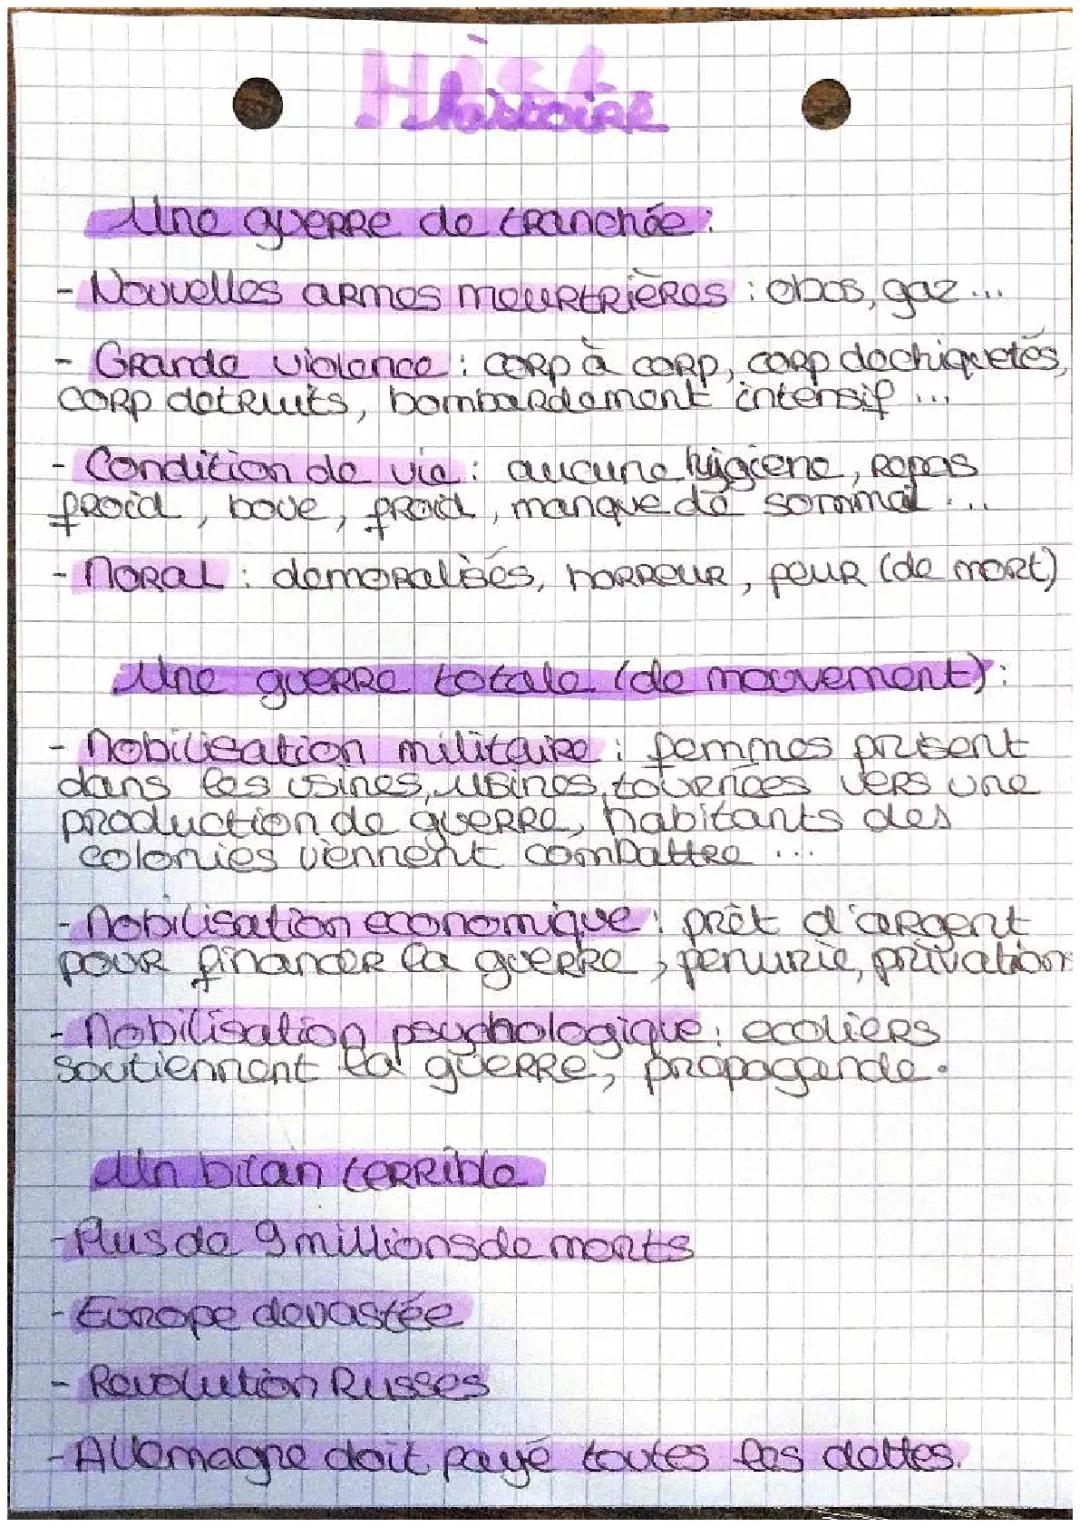 Histoire
Une guerre de tranchée :
- Nouvelles armes meurtrières : obos, gaz ...
- Grande violence : corp à corp, corp dechiquetés,
corp detruits, bombardement intensif ...
- Condition de vie : aucune hygiene, repas
froid, boue, froid, manque de sommeil ...
- Moral : demoralisés, horreur, peur (de mort)
Une guerre totale (de mouvement) :
- Mobilisation militaire : femmes prisent
dans les usines, usines tournées vers une
production de guerre, habitants des
colonies viennent combattre ...
- Mobilisation economique : prêt d'argent
pour financer la guerre, penurie, privation
- Mobilisation psychologique : ecoliers
soutiennent la guerre, propagande.
Un bilan terrible
- Plus de 9 millions de morts
- Europe devastée
- Revolution Russes
- Allemagne doit payé toutes les dettes.